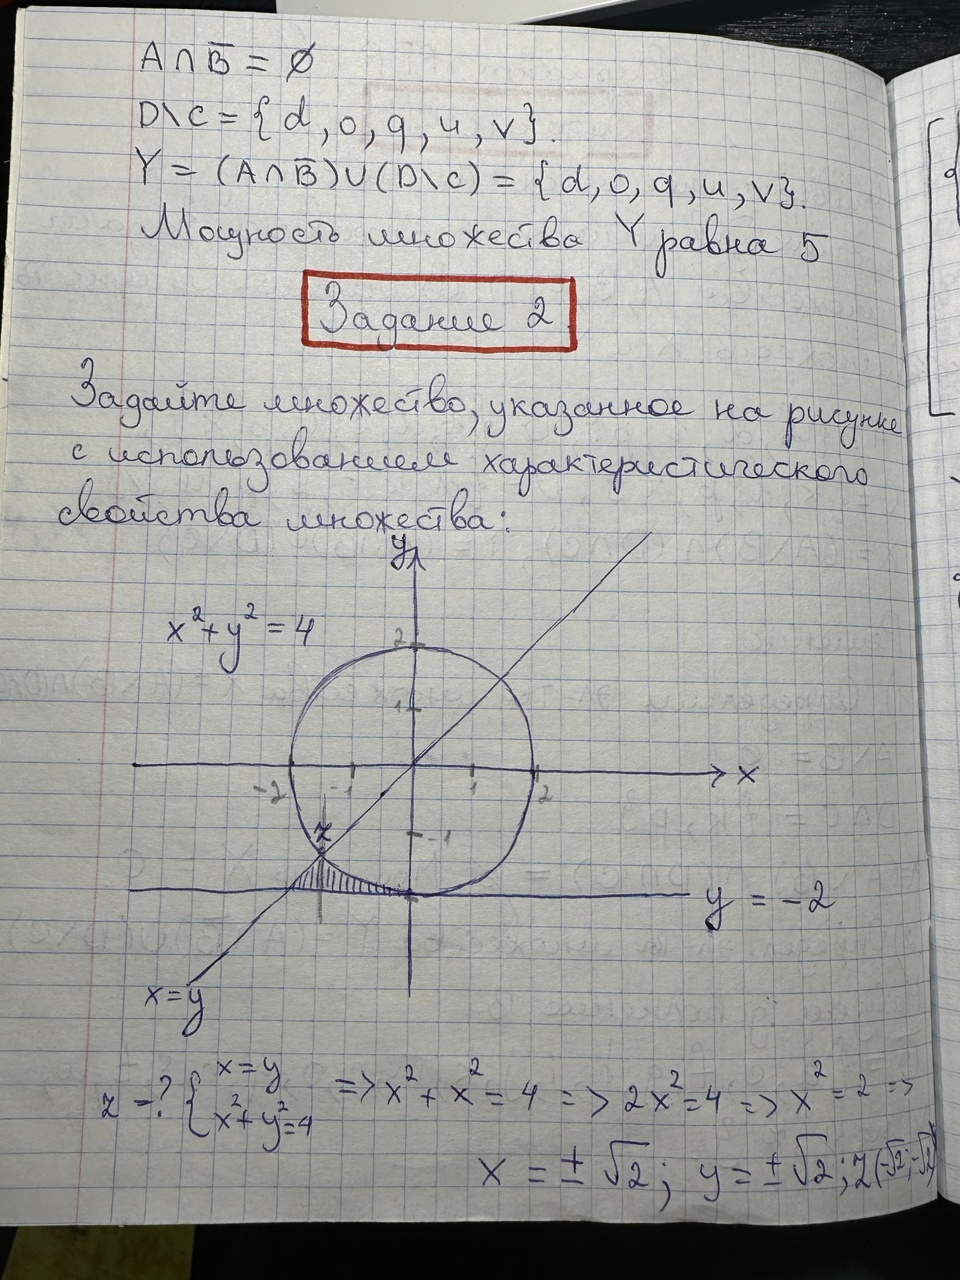 A∩B̅ = ∅
D\C = {d, o, q, u, v}.
Y = (A∩B̅)∪(D\C) = {d, o, q, u, v}.
Мощность множества Y равна 5
Задание 2
Задайте множество, указанное на рисунке
с использованием характеристического
свойства множества:
y
x² + y² = 4
2
1
-2 -1 1 2 x
z
-1
y = -2
x = y
z -? { x = y x² + y² = 4 => x² + x² = 4 => 2x² = 4 => x² = 2 =>
x = ± √2; y = ± √2; z(-√2; -√2)